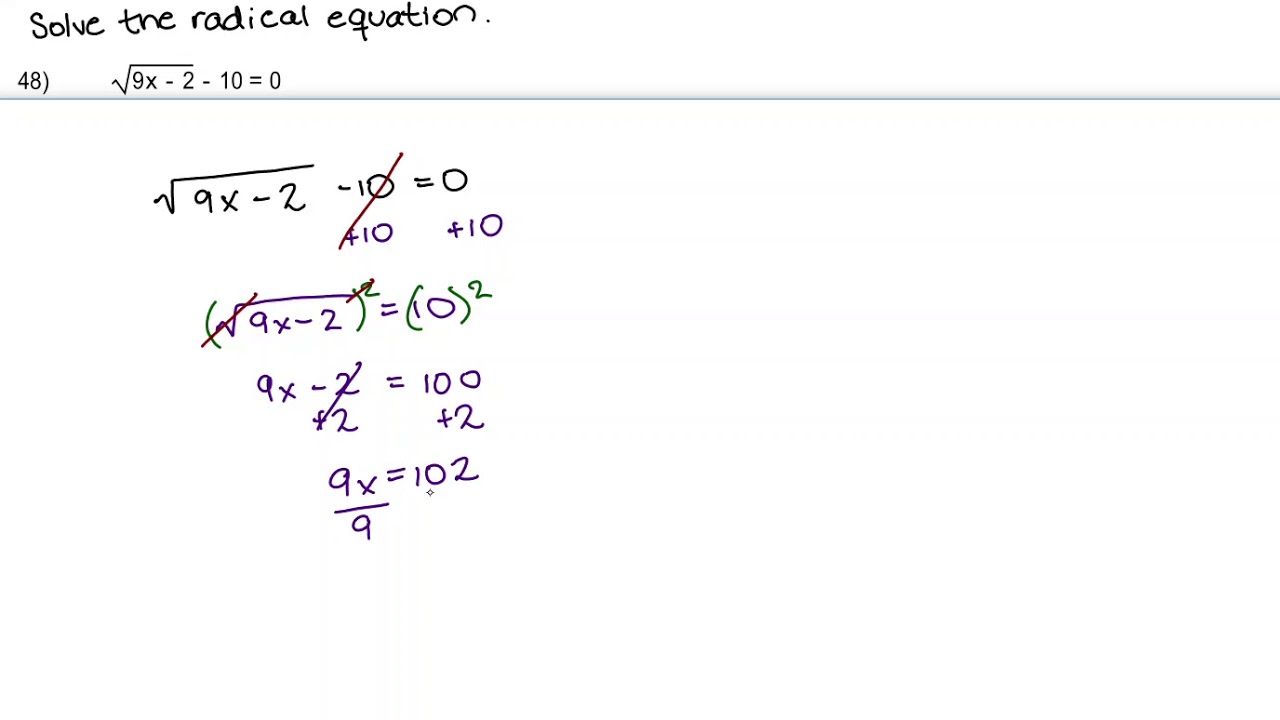 Solve the radical equation.
48) √9x - 2 - 10 = 0
√9x - 2 - 10 = 0
+10 +10
(√9x - 2)² = (10)²
9x - 2 = 100
+2 +2
9x = 102
9